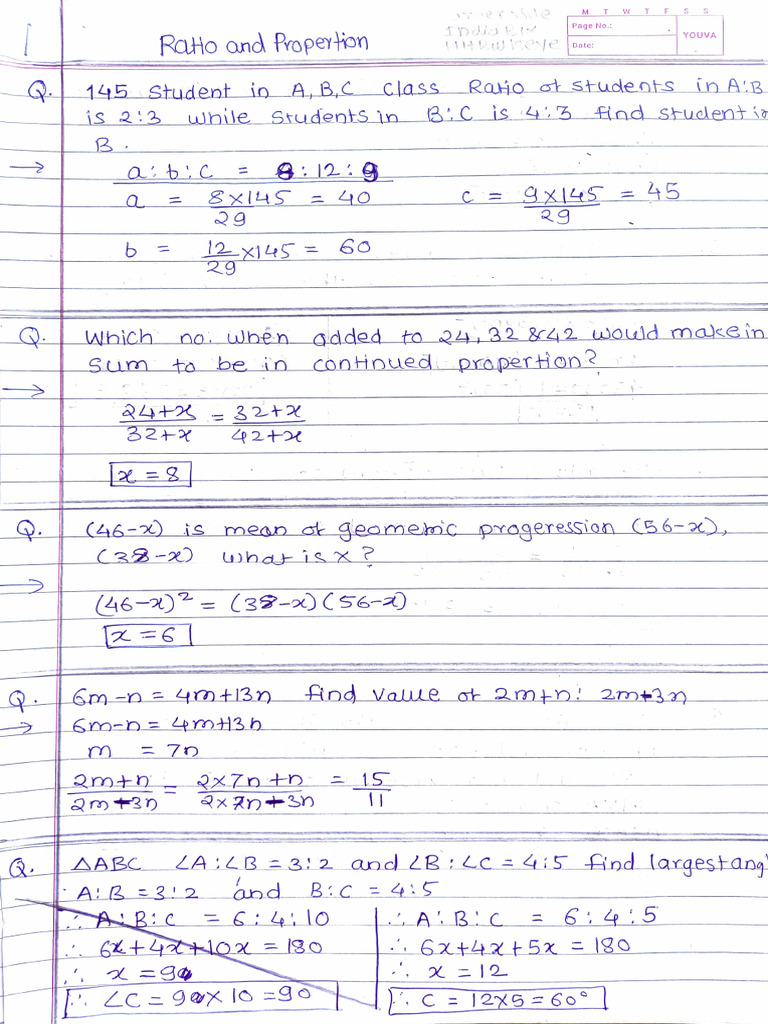 M T W T F S S
Page No.:
YOUVA
Date:
Ratio and Propertion
Q. 145 Student in A, B, C Class Ratio of students in A:B
is 2:3 while Students in B:C is 4:3 find student in
B.
→ a : b : c = 8 : 12 : 9
a = 8×145/29 = 40 c = 9×145/29 = 45
b = 12/29 ×145 = 60
Q. Which no. when added to 24, 32 & 42 would make in
sum to be in continued propertion?
→
24+x/32+x = 32+x/42+x
x = 8
Q. (46-x) is mean of geomeric progeression (56-x),
(38-x) what is x?
→
(46-x)² = (38-x)(56-x)
x = 6
Q. 6m-n = 4m+13n find value of 2m+n : 2m-3n
→ 6m-n = 4m+13n
m = 7n
2m+n/2m-3n = 2×7n+n/2×7n-3n = 15/11
Q. △ABC ∠A:∠B = 3:2 and ∠B:∠C = 4:5 find largest
A:B = 3:2 and B:C = 4:5
∴ A:B:C = 6:4:10
∴ 6x+4x+10x = 180
∴ x = 9
∴ ∠C = 9×10 = 90
∴ A:B:C = 6:4:5
∴ 6x+4x+5x = 180
∴ x = 12
∴ C = 12×5 = 60°